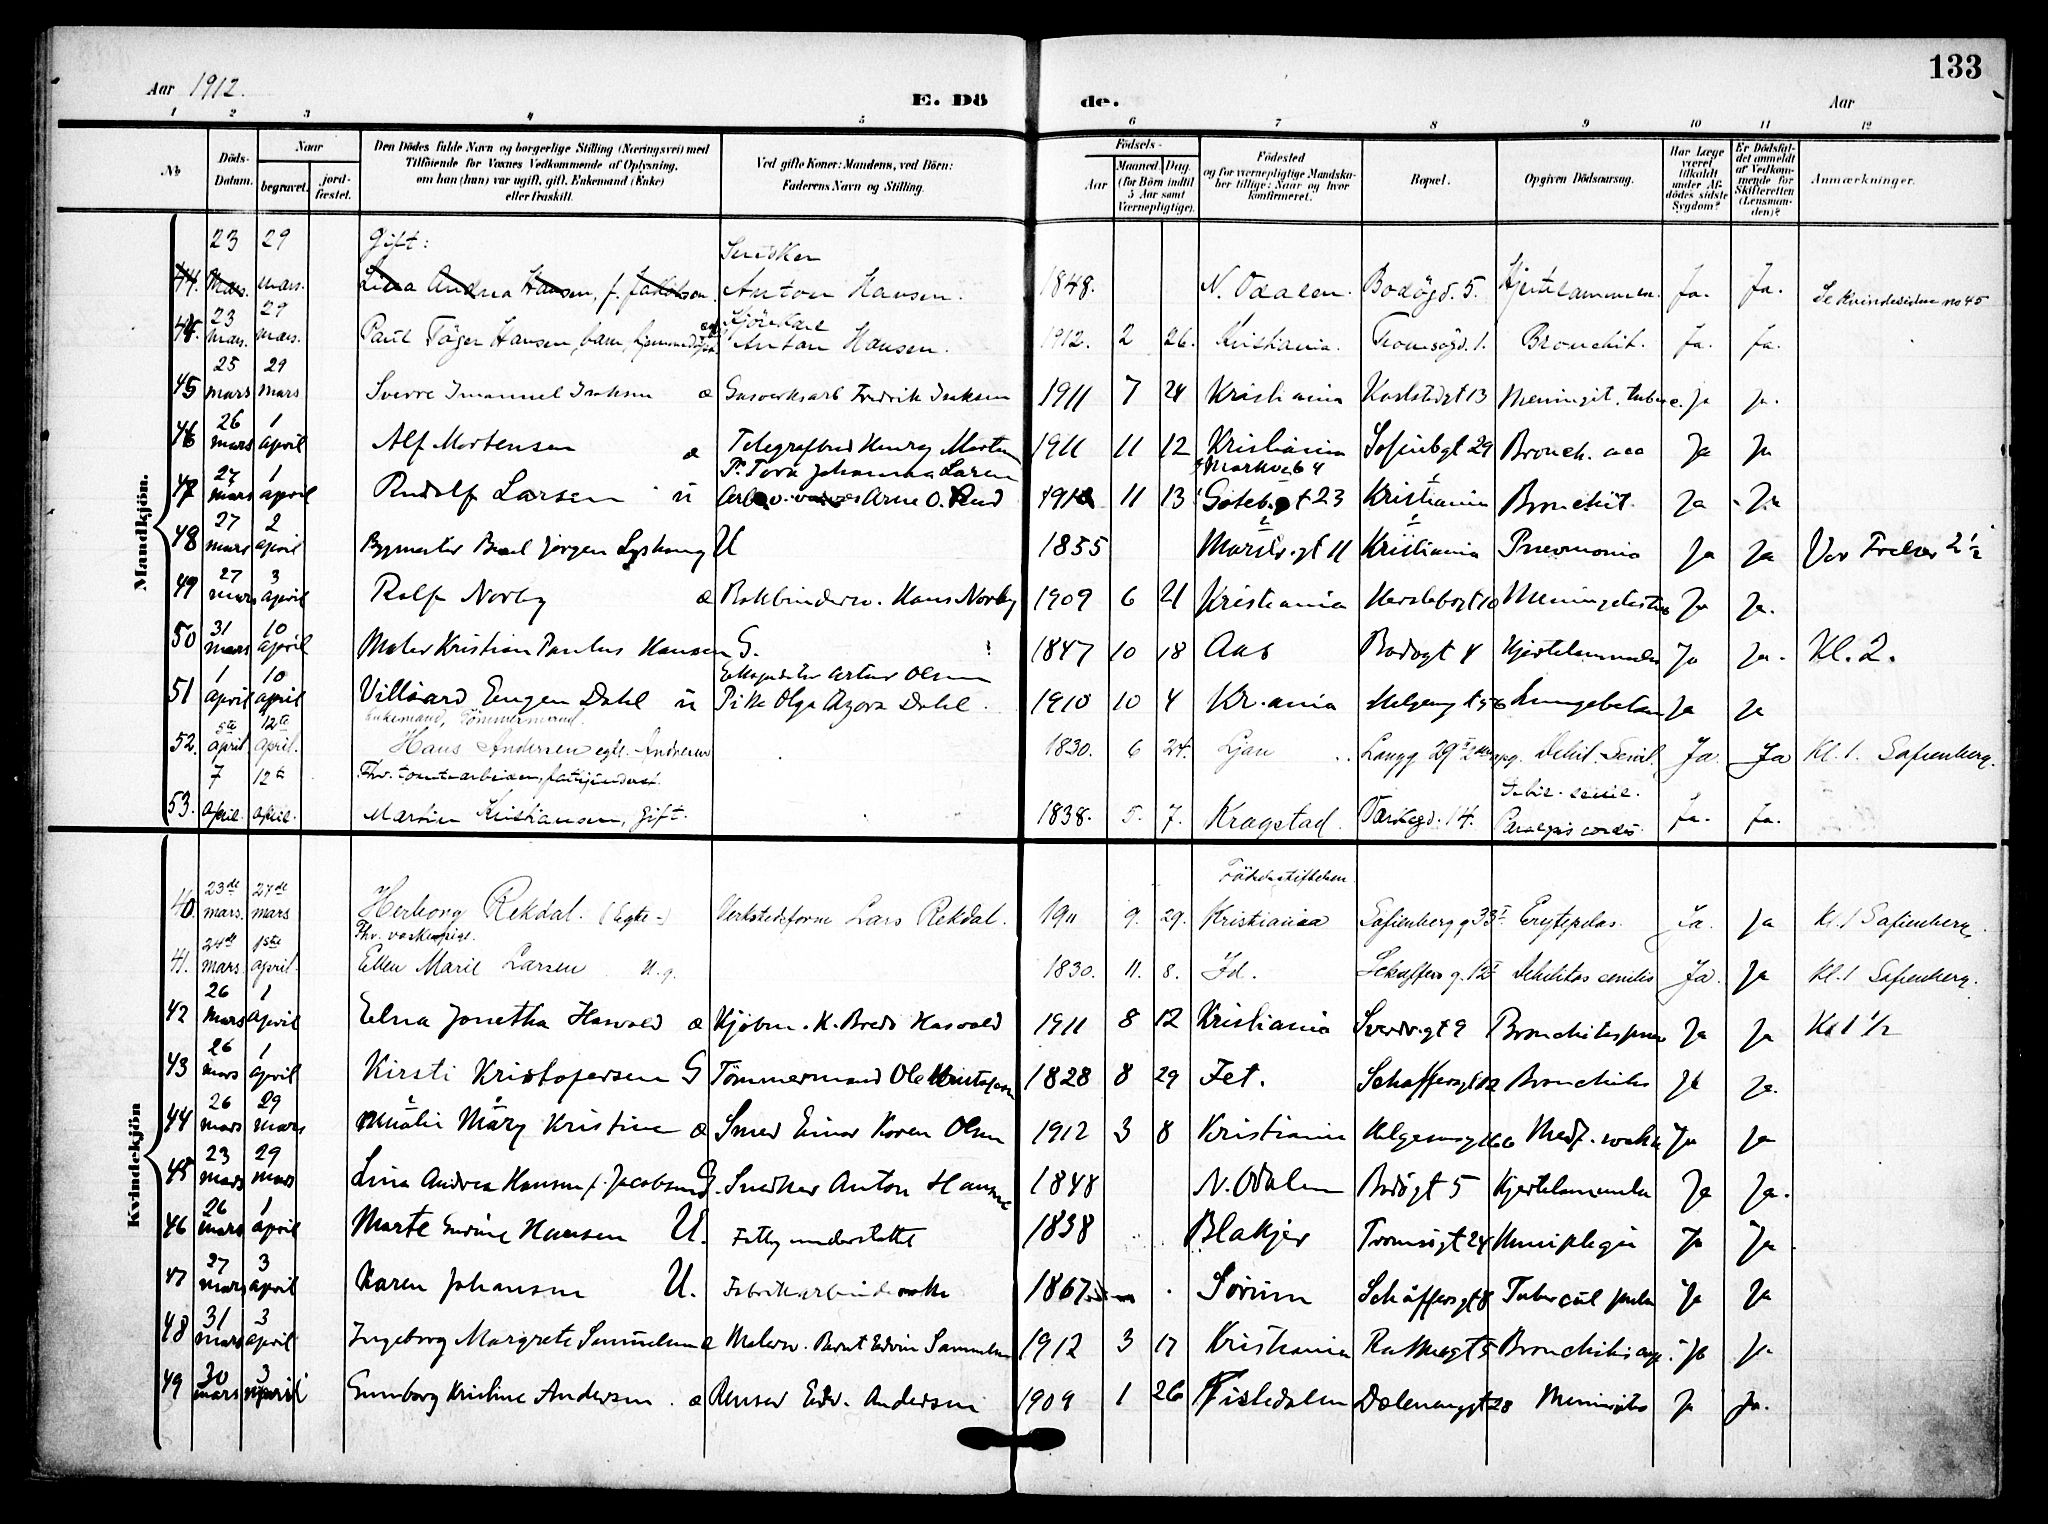 133
Aar 1912.
E. Dö de.
Aar
1 2 3 4 5 6 7 8 9 10 11 12
No
Döds-Datum.
Naar
begravet.
jord-fæstet.
Den Dödes fulde Navn og borgerlige Stilling (Næringsvei) med
Tilföiende for Voxnes Vedkommende af Oplysning,
om han (hun) var ugift, gift, Enkemand (Enke)
eller fraskilt.
Ved gifte Koner: Mandens, ved Börn:
Faderens Navn og Stilling.
Födsels-
Aar
Maaned. Dag.
(for Börn indtil
5 Aar samt
Værnepligtige).
Födested
og for værnepligtige Mandska-
ber tillige: Naar og hvor
konfirmeret.
Bopæl.
Opgiven Dödsaarsag.
Har Læge
været
tilkaldt
under Af-
dödes sidste
Sygdom?
Er Dödsfal-
det anmeldt
af Vedkom-
mende for
Skifteretten
(Lensman-
den)?
Anmærkninger.
Mandkjön.
23 29 Gift: Snedker
44. Mars. mars. Lina Andrea Hansen, f. Jakobsen. Anton Hansen. 1848. N. Odalen. Bodögd. 5. Hjertelammelse. Ja. Ja. Se Kvindesiden no 45
23 29 Kjörekarl
44. mars. mars. Paul Hansen, barn, Anton Hansen. 1912. 2 26. Kristiania. Tromsögd. 1. Bronchit. Ja. Ja.
25 29
45 mars mars Sverre Imanuel Isaksen æ Gasverksarb Fredrik Isaksen 1911 7 24 Kristiania Karlstadgt 13 Meningit. tuberc. Ja Ja.
26 1
46 mars april Alf Mortensen æ Telegrafbud Henry Morten 1911 11 12 Kristiania Sofienbgt 29 Bronch. Ja Ja
27 1 P. Tora Johanna Larsen Markv 64
47 mars april Rudolf Larsen u Arne O. Rud 11 13 Gøtebgt 23 Kristiania Bronchit. Ja Ja
27 2
48 mars april Bygmester Jørgen U 1855 gt 11 Kristiania Pneumonia Ja Ja Vor Frelser 2 ½
27 3
49 mars april Rolf Norby æ Bokbindersv. Hans Norby 1909 6 21 Kristiania Herslebsgt 10 Ja Ja.
31 10
50 mars april Maler Kristian Paulus Hansen G. 1847 10 18 Aas Bodøgt 4 Hjertelammelse Ja Ja. Kl. 2.
1 10 Ekspeditør Artur Olsen
51 april april Eugen Dahl u Pike Olga Agora Dahl. 1910 10 4 Kr.ania Helgesengt 56 Lungebetæn Ja Ja
5te 12te Enkemand, Tömmermand.
52. april. april. Hans Andersen egtl. Andresen 1830. 6 24. Ljan Langg 29 Debil. Senil. Ja. Ja Kl. 1. Sofienberg.
7 12te Fhv. tomtearbeider, fattigunderst. Debil. senil.
53. april. april. Martin Kristiansen, Gift. 1838. 5. 7. Kragstad. 14. Paralysis cordis. Ja. Ja.
Kvindekjön
23de 27de Födselsstiftelsen.
40. mars. mars Herborg Rekdal. (Egte -) Verkstedsform Lars Rekdal. 1911 9. 29. Kristiania Sofienberg g 33 Erysipelas. Ja. Ja Kl. 1 Sofienberg.
24de 1ste Fhv. vaskepige.
41. mars. april. Ellen Marie Larsen U.g. 1830. 11. 8. Id. Schaffers g. 12 Debilitas senilis Ja. Ja Kl. 1 Sofienberg.
26 1
42 Mars April Edna Jonetha Hasvold æ Kjøbm. K. Brede Hasvold 1911 8 12 Kristiania Sverdr.gt 9 Bronchitis Ja Ja Kl 1 ½
26 1
43 mars april Kirsti Kristofersen G Tömmermand Ole Kristofersen 1828 8 29 Fet. Schaffersgt 12 Bronchitis Ja Ja.
26 29
44 mars mars Mary Kristine æ Smed Einar Koren Olsen 1912 3 8 Kristiania Helgesensg 66 Medf. svakh Ja Ja
23 29
45 mars mars Lina Andrea Hansen f. Jacobsen G. Snedker Anton Hansen 1848 N. Odalen Bodøgt 5 Hjertelammelse Ja Ja.
26 1
46 mars april Marte Hansen U. Fattigunderstøttet 1838 Blakjer Tromsøgt 24 Hemiplegia Ja Ja
27 3
47 mars april Karen Johansen U. Fabrikarbeiderske 1867 Sørum Schaffersgt 8 Tubercul pulm Ja Ja
31 3
48 mars april Ingeborg Margrete Samuelsen æ Malersv. Bernt Edvin Samuelsen 1912 3 17 Kristiania gt 5 Bronchitis cap. Ja Ja.
30 3
49 mars april Gunborg Kristine Andersen. æ Renser Edv. Andersen 1909 1 26 Tistedalen Dælenenggt 28 Meningitis Ja Ja.